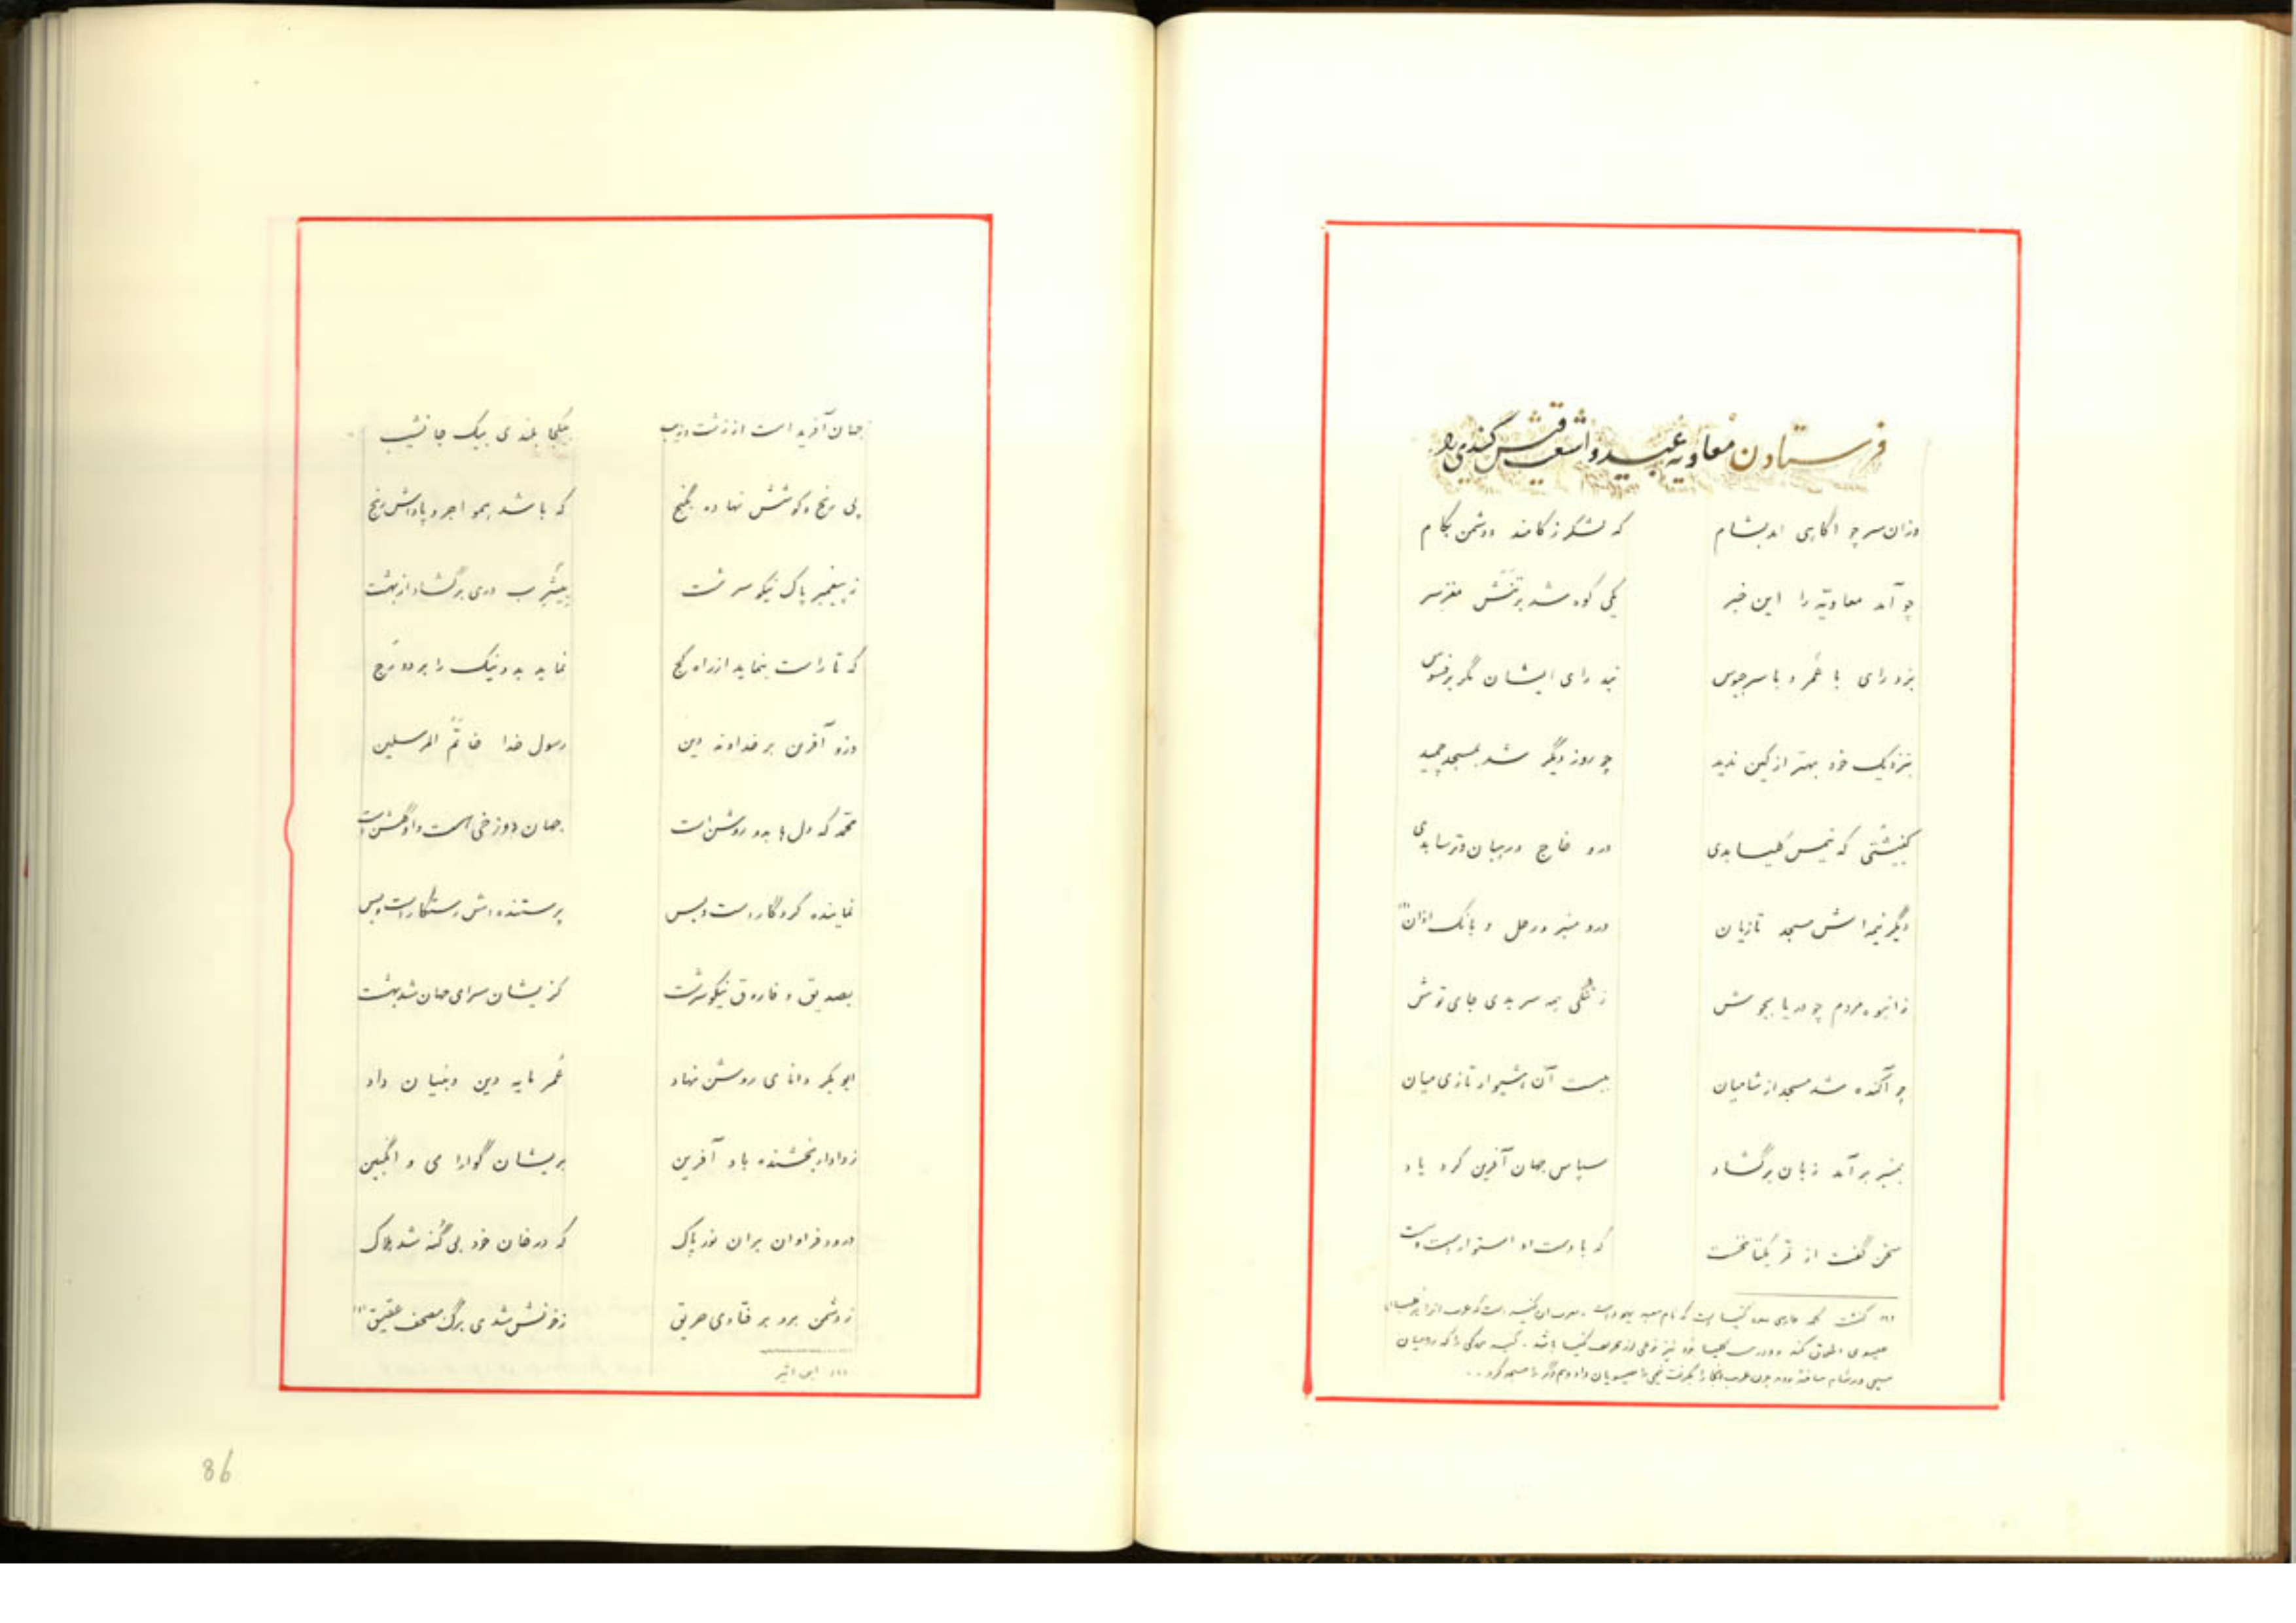 فرستادن معاویه عبید و اشعث قیس کندی را
وزان سر چو آگاهی آمد بشام که لشکر زکامند دشمن بکام
چو آمد معاویّه را این خبر یکی کوه شد بر تنش مغز سر
بزد رای با عَمر و با سرجیوس نبد رای ایشان مگر بر فسوس
بنزدیک خود بهتر از کین ندید چو روز دیگر شد بمسجد چمید
کنِشتی که نیمس کلیسا بدی درو خاج و رهبان و ترسا بدی
دیگر نیمه‌اش مسجد تازیان درو منبر و رحل و بانگ اذان (۱)
ز انبوه مردم چو دریا بجوش ز تنگی همه سر بدی جای توش
چو آکنده شد مسجد از شامیان ببست آن هشیوار تازی میان
بمنبر بر آمد زبان برگشاد سپاس جهان آفرین کرد یاد
سخن گفت از فرّ یکتا نخست که با دست او استوار است و سست
جهان آفرید است از زشت و زیب بیکجا بلندی بیک جا نشیب
پی رنج و کوشش نهاده گنج که باشد همو اجر و پاداش رنج
ز پیغمبر پاک نیکو سرشت بیثرب دری برگشاد از بهشت
که تا راست بنماید از راه کج نماید بد و نیک را بر دو مَرج
وزو آفرین بر خداوند دین رسول خدا خاتَمُ المرسلین
محمّد که دل‌ها بدو روشن است جهان دوزخی است و او گلشن است
نماینده کردگار است و بس پرستنده‌اش رستگار است و بس
بصدیق و فاروق نیکو سرشت کزیشان سرای جهان شد بهشت
ابوبکر دانای روشن نهاد عُمر مایه دین و بنیان داد
ز دادار بخشنده باد آفرین بریشان گوارا می و انگبین
درود فراوان بران نور پاک که در خان خود بی گُنه شد هلاک
ز دشمن برو بر فتادی حریق ز خونش شدی برگ مصحف عقیق (۱)
(۱) ابن اثیر
86